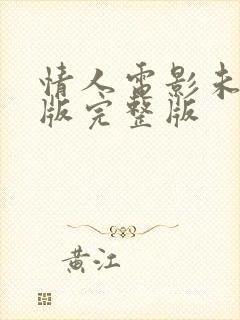 情人电影未
版完整版
黄江